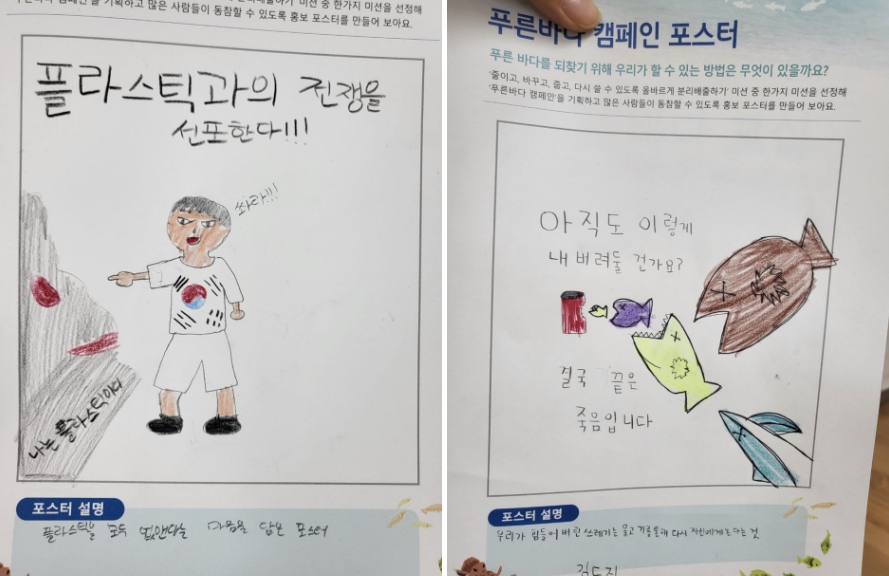 캠페인'을 기획하고 많은 사람들이 동참할 수 있도록 홍보 포스터를 만들어 보아요.
플라스틱과의 전쟁을
선포한다!!!
쏴라!!!
나는 플라스틱이다
포스터 설명
플라스틱을 모두 없앤다는 마음을 담은 포스터
푸른바다 캠페인 포스터
푸른 바다를 되찾기 위해 우리가 할 수 있는 방법은 무엇이 있을까요?
'줄이고, 바꾸고, 줍고, 다시 쓸 수 있도록 올바르게 분리배출하기' 미션 중 한가지 미션을 선정해
'푸른바다 캠페인'을 기획하고 많은 사람들이 동참할 수 있도록 홍보 포스터를 만들어 보아요.
아직도 이렇게
내 버려둘 건가요?
결국 끝은
죽음입니다
포스터 설명
우리가 힘들어 버린 쓰레기는 돌고 다시 자신에게 온다는 것